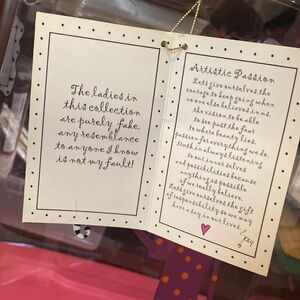 The ladies in
this collection
are purely fake,
any resemblance
to anyone I know
is not my fault!
Artistic Passion
Lets give ourselves the
courage to keep going when
no one else believes in us,
the vision to be able
to see past the fear
to where beauty lies,
passion for everything we do,
truth in always listening
to our inner selves
and possibilities because
anything is possible
if we really believe.
Lets give ourselves the gift
of responsibility so we may
have a say in our lives!